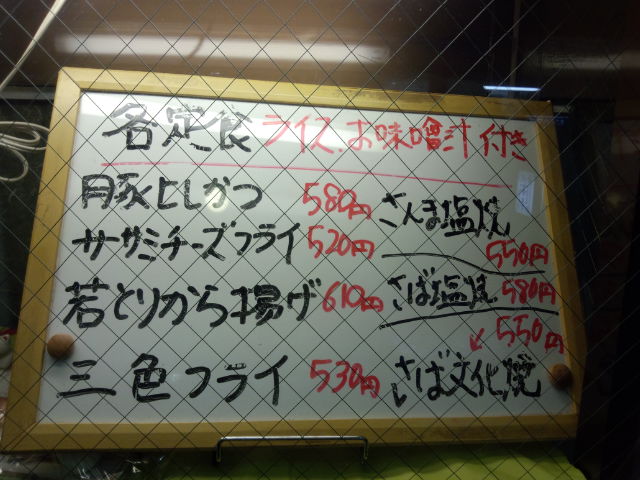 各定食 ライス、お味噌汁付き
豚ヒレかつ 580円
サーサミチーズフライ 520円
若とりから揚げ 610円
三色フライ 530円
さんま塩焼
550円
さば塩焼 580円
550円
さば文化焼